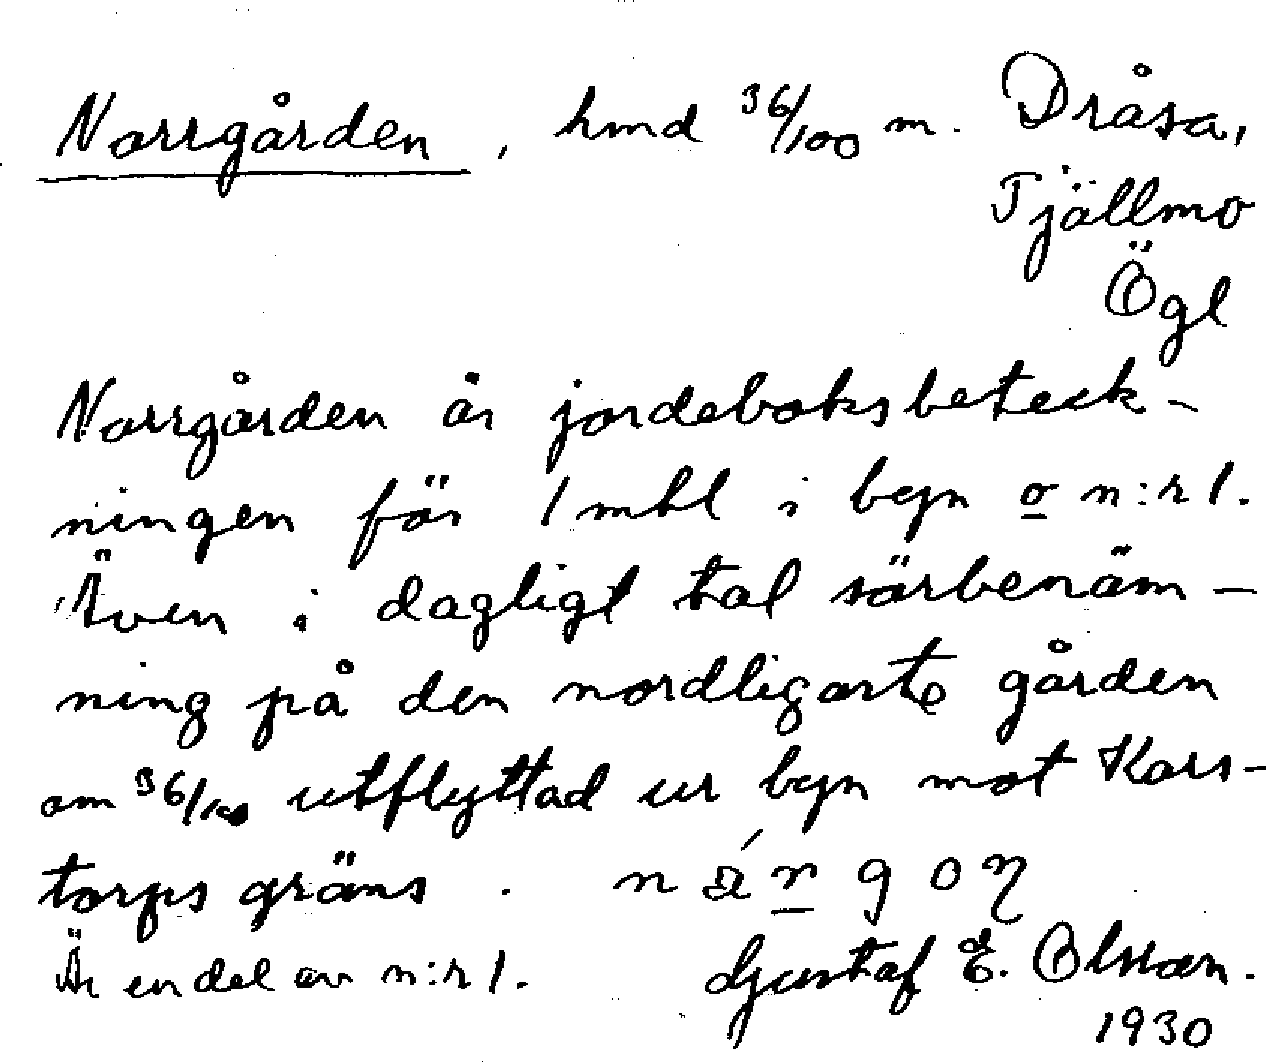 Norrgården, hmd 36/100 m. Dråsa,
Tjällmo
Ögl
Norrgården är jordeboksbeteck-
ningen för 1 mtl i byn o n:r 1.
Även i dagligt tal särbenäm-
ning på den nordligaste gården
om 36/100 utflyttad ur byn mot Kars-
torps gräns.
Är en del av n:r 1. Gustaf E. Olsson.
1930